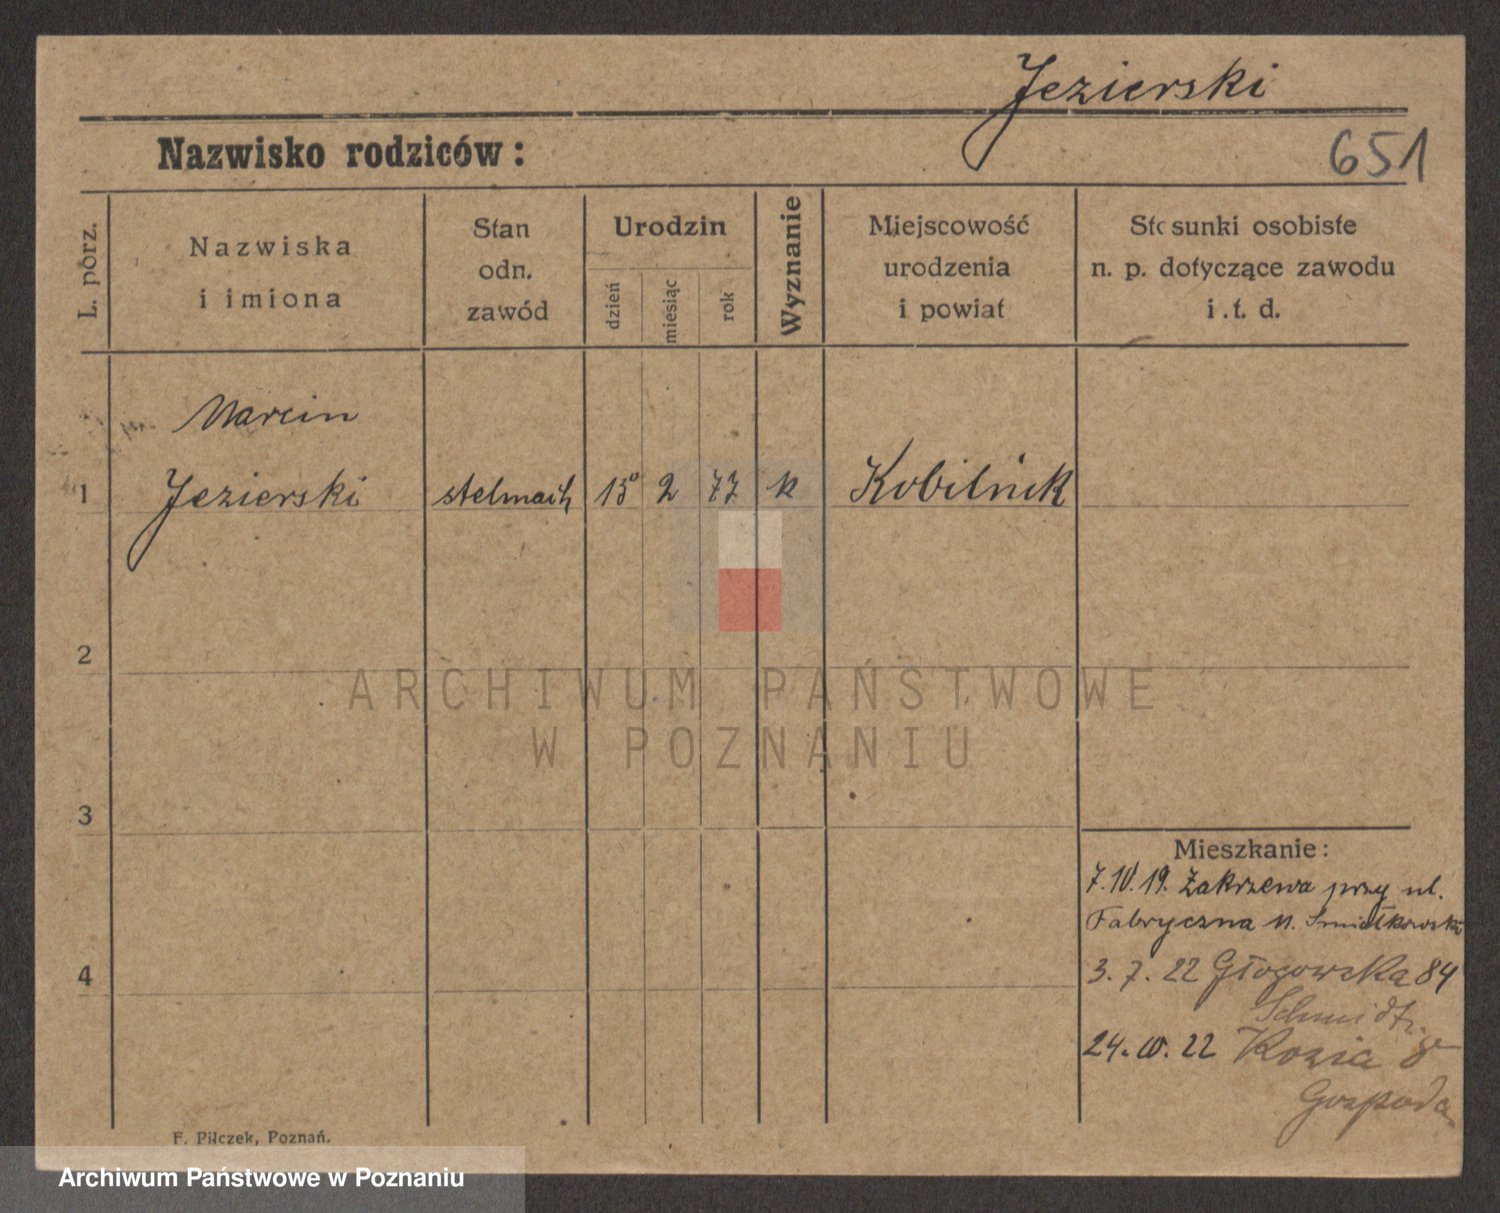 Jezierski
Nazwisko rodziców:
651
L. porz.
Nazwiska
i imiona
Stan
odn.
zawód
Urodzin
dzień
miesiąc
rok
Wyznanie
Miejscowość
urodzenia
i powiat
Stosunki osobiste
n. p. dotyczące zawodu
i .t. d.
Marcin
1 Jezierski stelmach 2 77 k Kobilnik
2
ARCHIWUM PAŃSTWOWE
W POZNANIU
3
Mieszkanie:
7.10.19. Zakrzewa przy ul.
Fabryczna
4
3. 7. 22 Głogowska 84
Schmidt
24. 22 Kozia 8
Gospoda
F. Pilczek, Poznań.
Archiwum Państwowe w Poznaniu